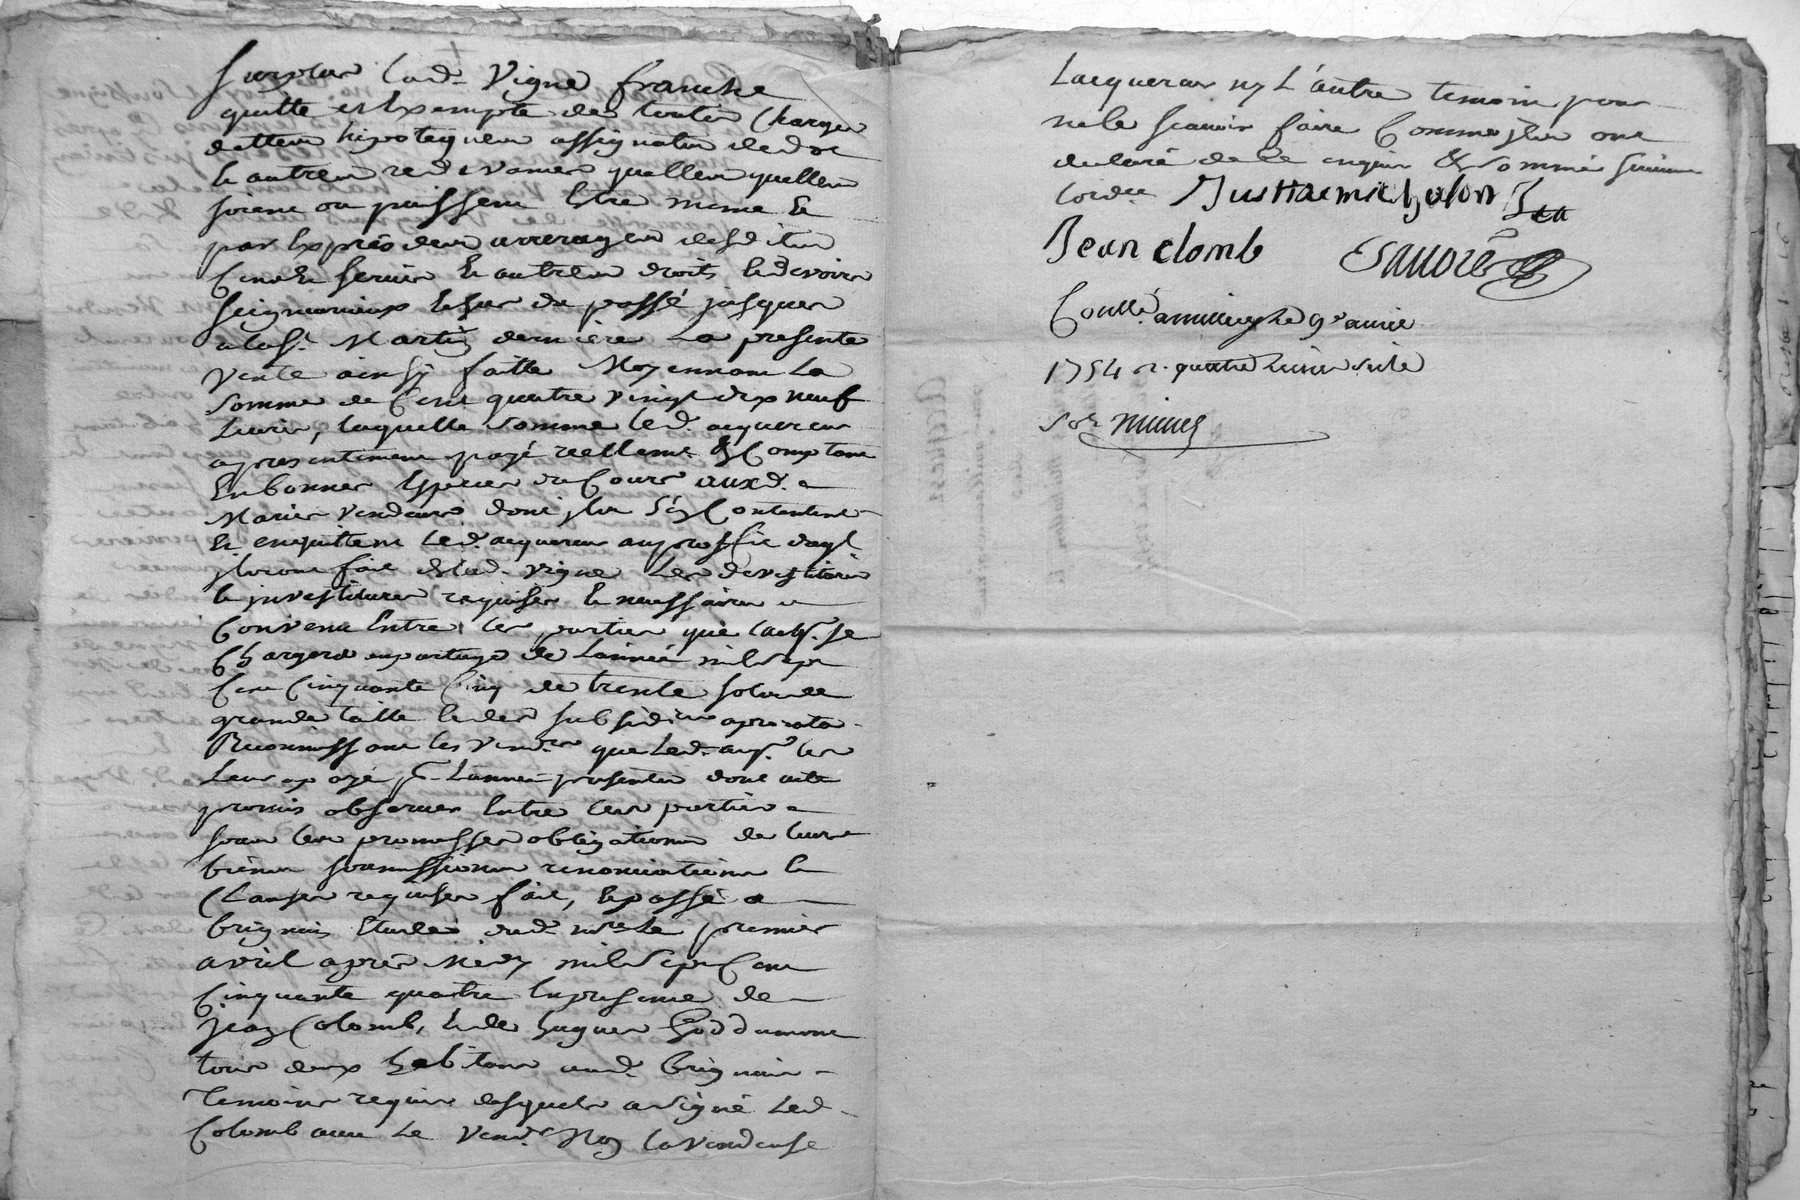 surplus lad. Vigne franche
quitte et Exempte des toutes Charges
dettes hipoteques assignation de dot
Et autres redevances quelles quelles
soient ou puissent Etre meme Et
par Exprés des arrerages desdites
Cens Et servis Et autres droits Et devoirs
seigneuriaux Et sur du passé jusques
a la St. Martin derniere La presente
Vente ainsy faitte Moyennant La
somme de Cent quatre vingt dix neuf
Livres, laquelle somme led. acquereur
a presentement payé reellemt. & Comptant
En bonnes Especes de Cours auxd.
Mariés vendeurs dont ils s'en Contentent
Et enquittent Led. acquereur au proffit duql.
ils ont fait de lad. vigne Les devestitures
Et investitures requises Et necessaires
Convenu Entre les parties que l'acqr. se
Chargera au partage de L'année mil sept
Cent Cinquante Cinq de trente sols de
grande taille Et des subsidies aprorata
Reconnoissant les vendrs. que Led. acqr. les
Leur a payé pr. L'année presente dont acte
promis observer Entre les parties
sous les promesses obligations de leurs
biens soumissions renonciations Et
Clauses requises fait, Et passé a
brignais Etude dud. nore. Le premier
avril après Midy mil sept Cent
Cinquante quatre En presence de
Jean Colomb, Et de hugues Goddumont
tous deux habitans aud. Brignais
Temoins requis desquels a signé Led.
Colomb avec Le Vendr. Non la vendeuse
L'acquereur ny L'autre temoin pour
ne le scavoir faire Comme ils ont
declaré de Ce enquis & sommés suivant
lord.ce
Jean Clomb
Conllé. a le 9e avril
1754 R. quatre Livres